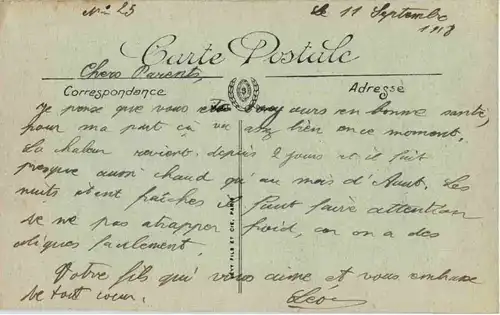 No 23
Le 11 Septembre
1918
Carte Postale
Chers Parents,
Correspondance
Adressé
Je pense que vous etes toujours en bonne santé,
pour ma part ça va assez bien en ce moment.
La chaleur revient depuis 2 jours et il fait
presque aussi chaud qu'au mois d'Aout. Les
nuits etent fraiches il faut faire attention
de ne pas attrapper froid, car on a des
coliques facilement.
Votre fils qui vous aime et vous embrasse
de tout coeur.
Léon